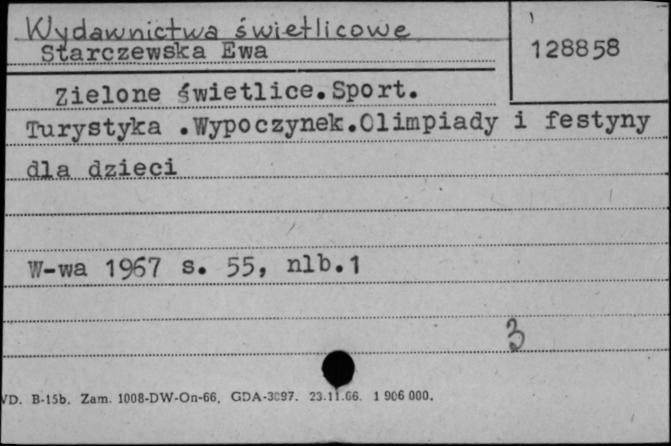 Wydawnictwa świetlicowe
Starczewska Ewa
128858
Zielone świetlice.Sport.
Turystyka .Wypoczynek.Olimpiady i festyny
dla dzieci
W-wa 1967 s. 55, nlb.1
3
VD. B-15b. Zam. 1008-DW-On-66. GDA-3C97. 23.11.66. 1 906 000.